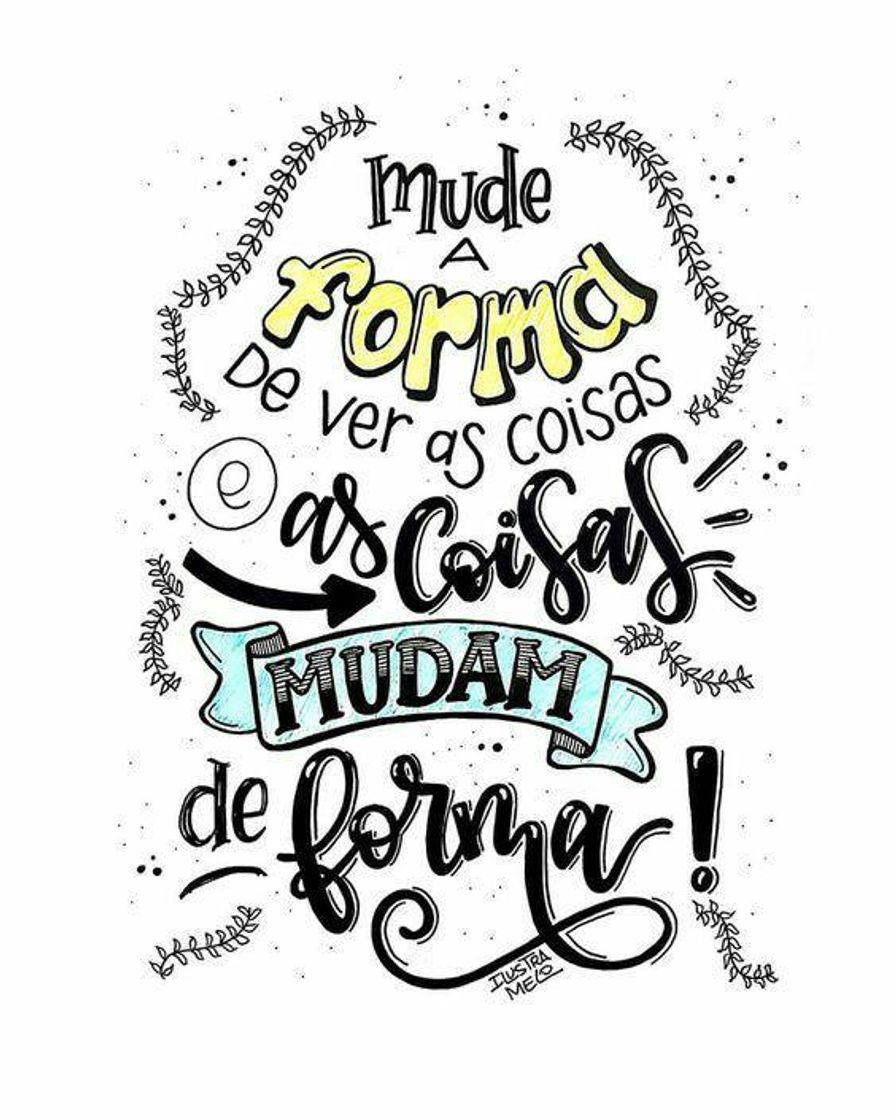 mude
A
forma
De ver as coisas
e as coisas
MUDAM
de forma!
ILUSTRA
MELO